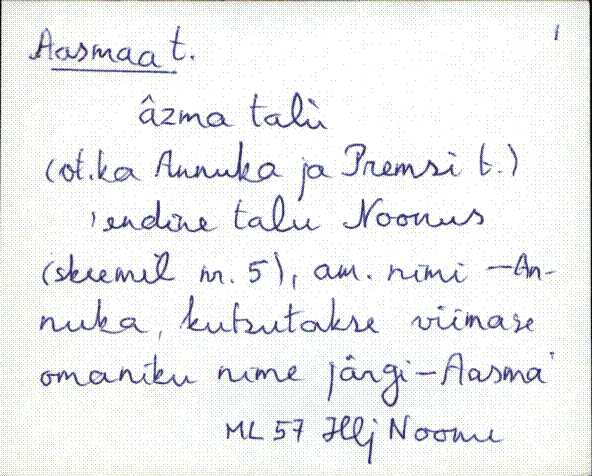 1
Aasmaa t.
âzma talù
(ot.ka Annuka ja Premsi t.)
'endine talu Noonus
(skeemil nr. 5), am. nimi – An-
nuka, kutsutakse viimase
omaniku nime järgi – Aasma
ML 57 Hlj Noonu